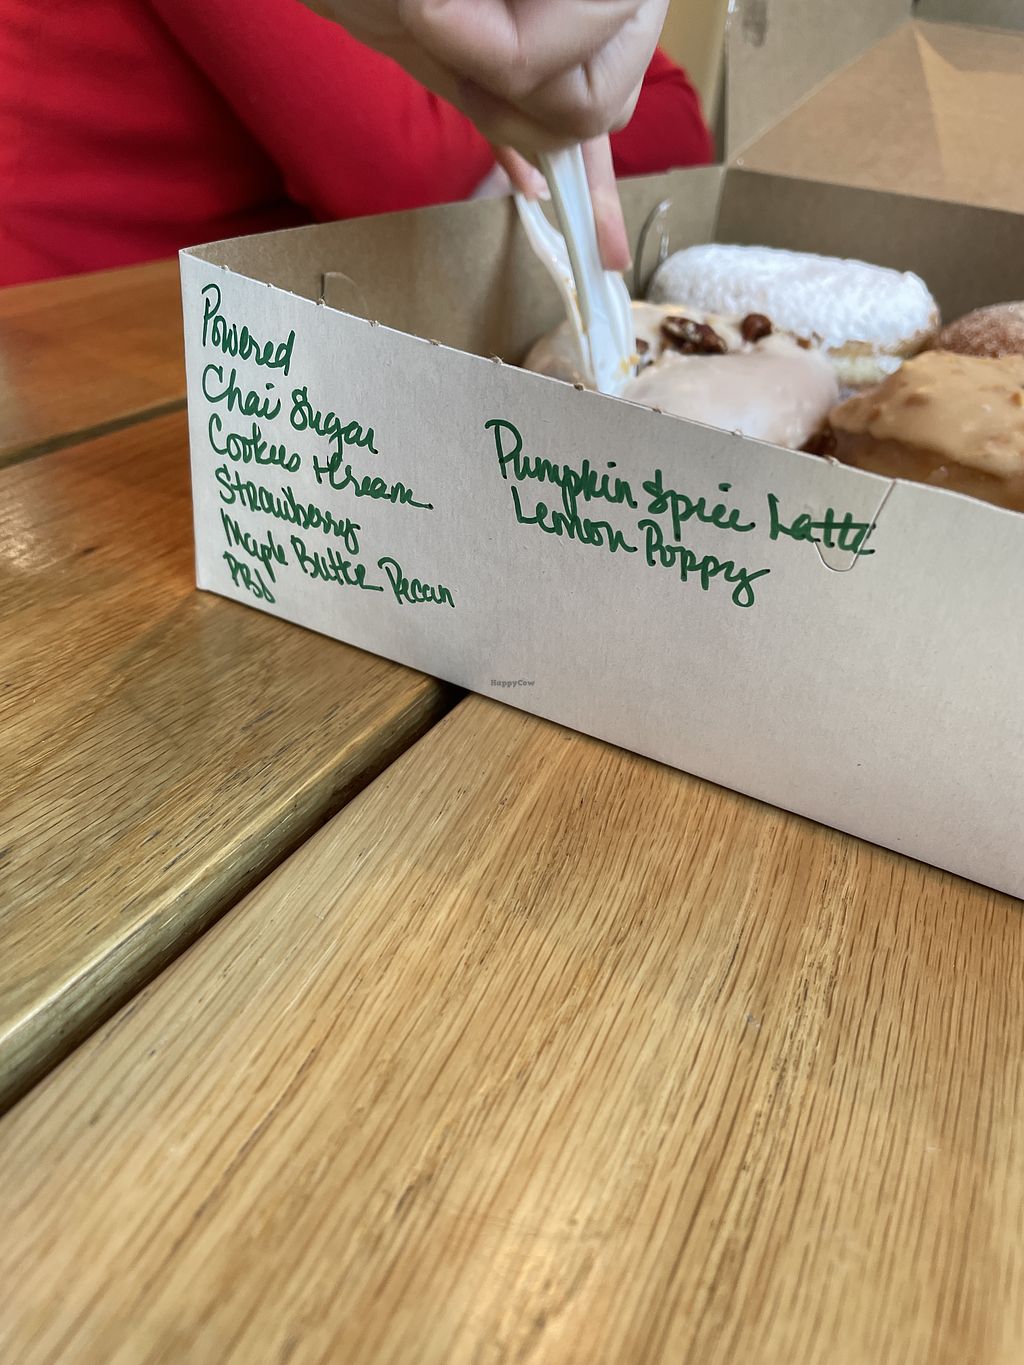 Powered
Chai Sugar
Cookies + Cream
Strawberry
Maple Butter Pecan
PBJ
Pumpkin Spice Latte
Lemon Poppy
HappyCow